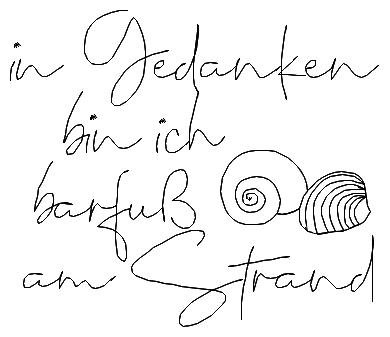 in Gedanken
bin ich
barfuß
am Strand